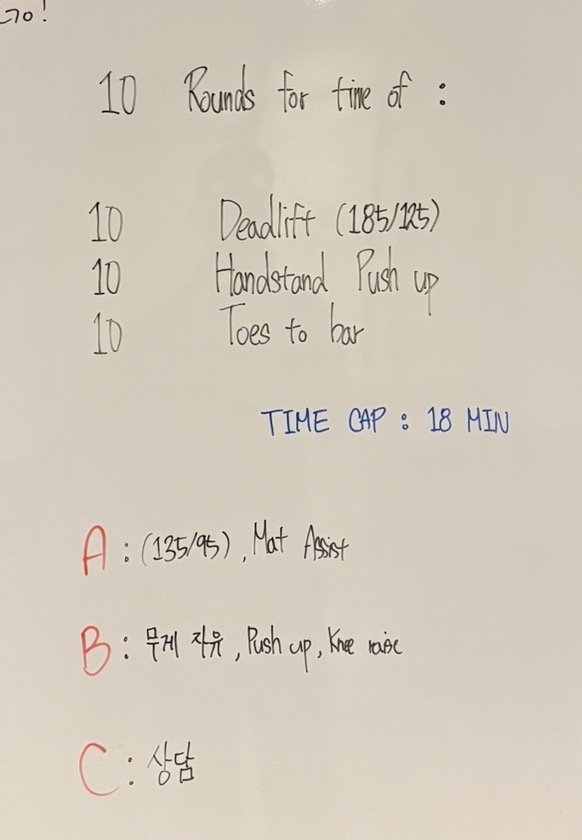 Go!
10 Rounds for time of :
10 Deadlift (185/125)
10 Handstand Push up
10 Toes to bar
TIME CAP : 18 MIN
A : (135/95), Mat Assist
B : 무게 자유, Push up, Knee raise
C : 상담